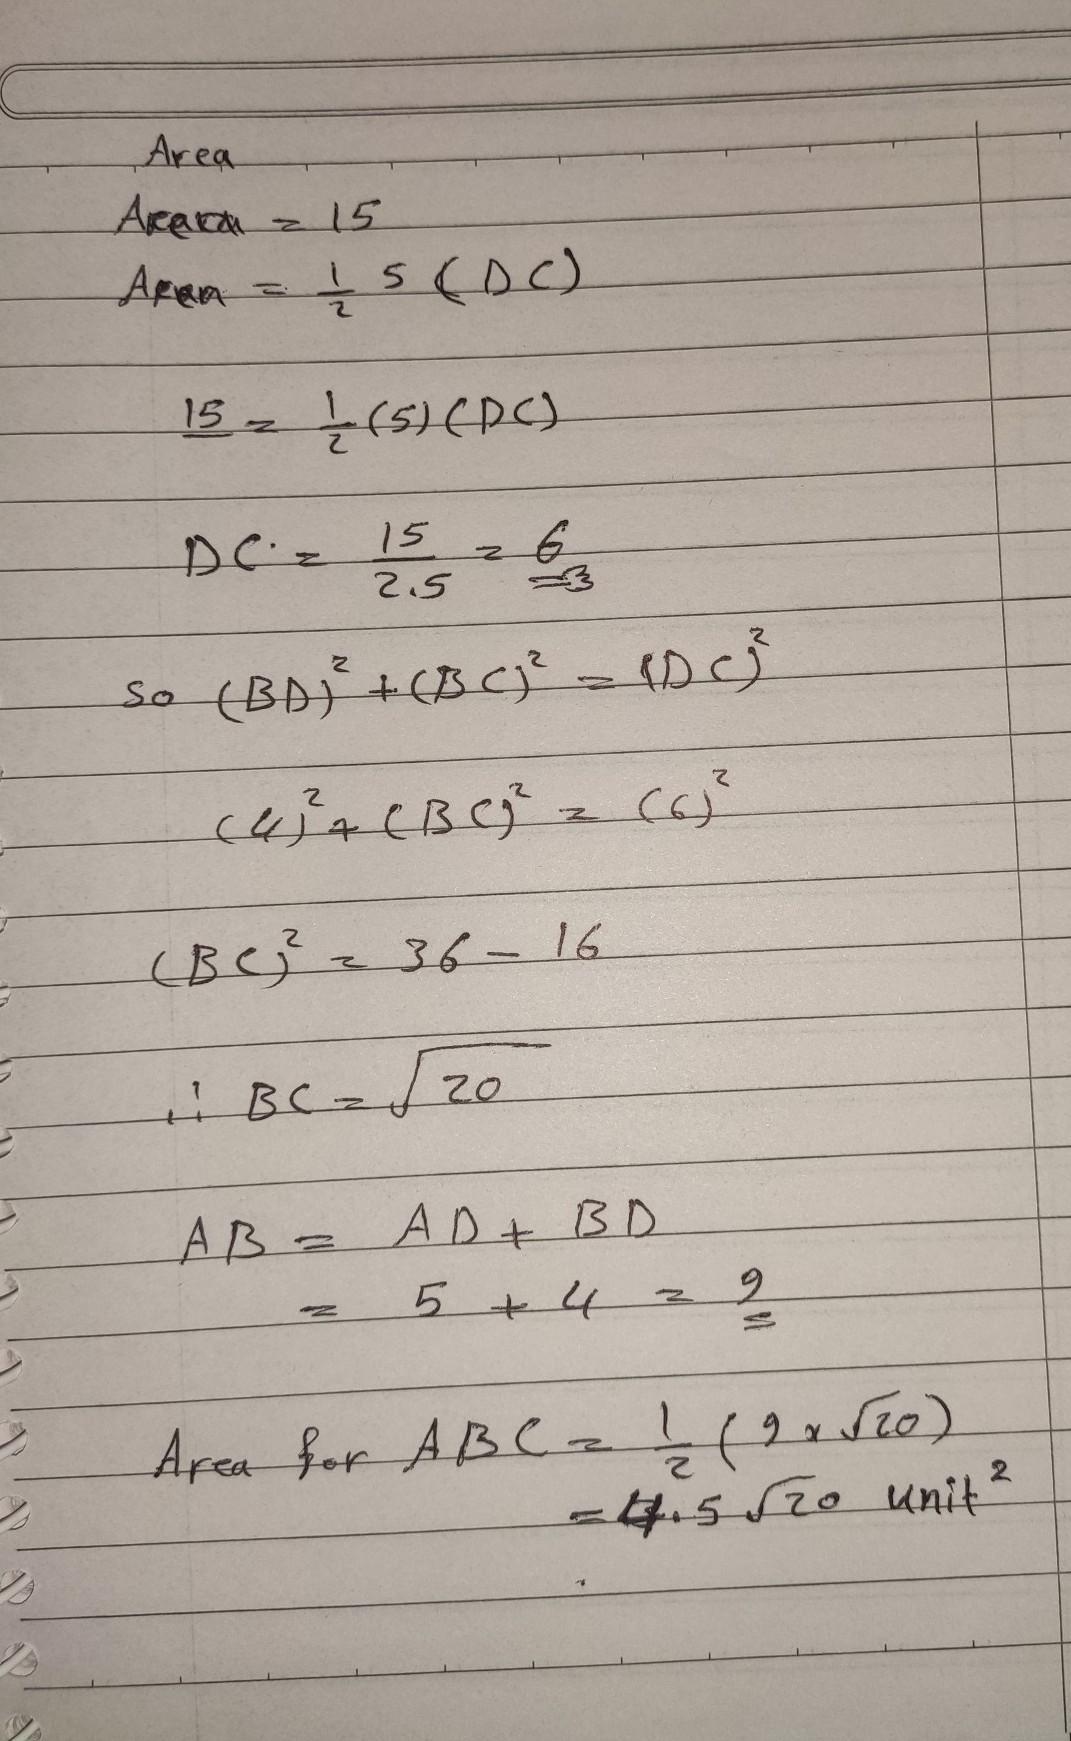 Area
Area = 15
Area = 1/2 5 (DC)
15 = 1/2 (5) (DC)
DC = 15/2.5 = 6
=3
so (BD)² + (BC)² = (DC)²
(4)² + (BC)² = (6)²
(BC)² = 36 - 16
∴ BC = √20
AB = AD + BD
= 5 + 4 = 9
Area for ABC = 1/2 (9 x √20)
= 4.5 √20 unit²